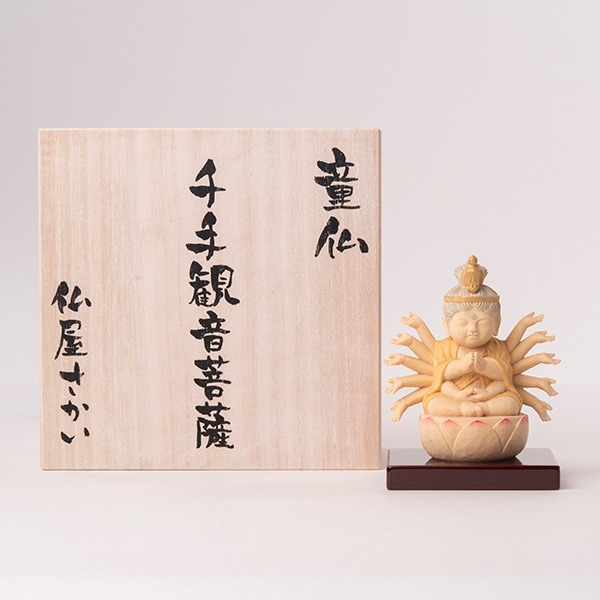 童仏
千手観音菩薩
仏屋さかい